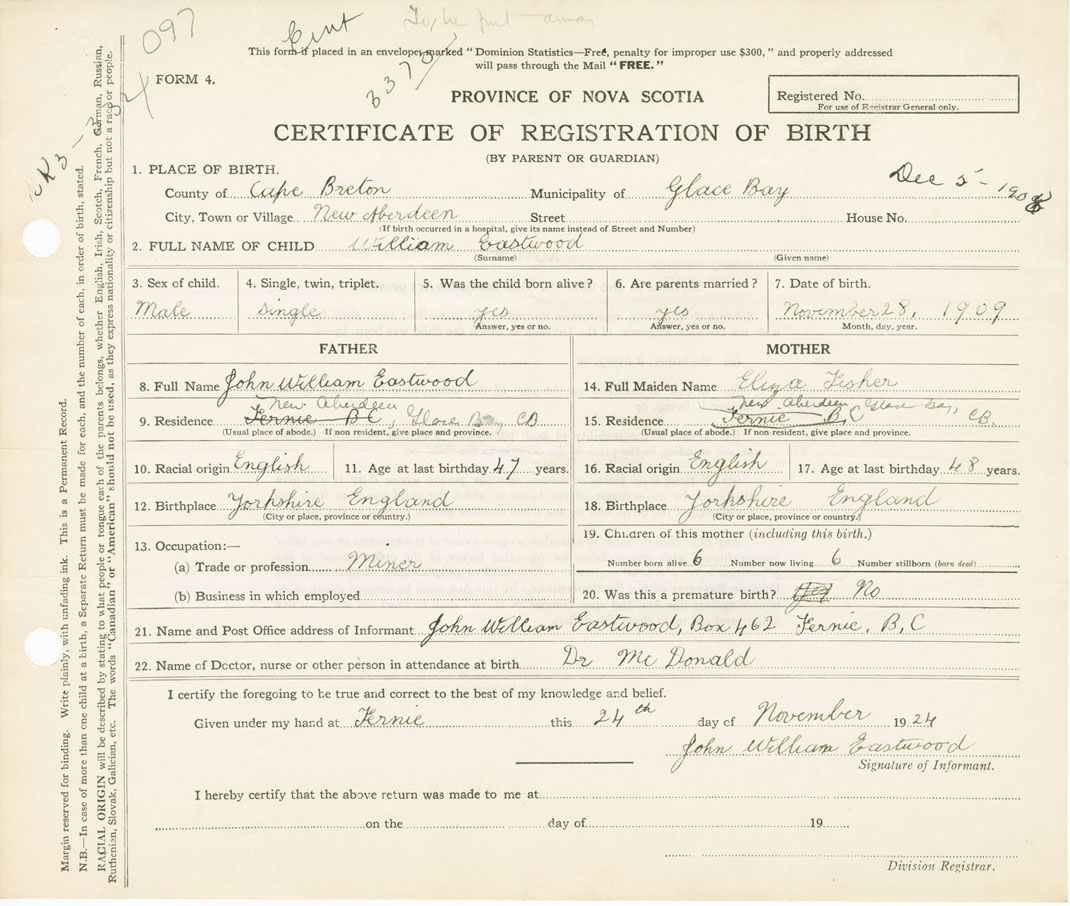 097
Cert
To be put away
3370
This form if placed in an envelope marked "Dominion Statistics—Free, penalty for improper use $300," and properly addressed
will pass through the Mail "FREE."
FORM 4.
PROVINCE OF NOVA SCOTIA
Registered No.
For use of Registrar General only.
CERTIFICATE OF REGISTRATION OF BIRTH
(BY PARENT OR GUARDIAN)
1. PLACE OF BIRTH.
Dec 5 - 1908
County of Cape Breton Municipality of Glace Bay
City, Town or Village New Aberdeen Street House No.
(If birth occurred in a hospital, give its name instead of Street and Number)
2. FULL NAME OF CHILD William Eastwood
(Surname) (Given name)
3. Sex of child. 4. Single, twin, triplet. 5. Was the child born alive? 6. Are parents married? 7. Date of birth.
Male single yes yes November 28, 1909
Answer, yes or no. Answer, yes or no. Month, day, year.
FATHER MOTHER
8. Full Name John William Eastwood 14. Full Maiden Name Eliza Fisher
New Aberdeen New Aberdeen Glace Bay,
9. Residence Fernie BC, Glace Bay CB 15. Residence Fernie B,C CB.
(Usual place of abode.) If non resident, give place and province. (Usual place of abode.) If non-resident, give place and province.
10. Racial origin English 11. Age at last birthday 47 years. 16. Racial origin English 17. Age at last birthday 48 years.
12. Birthplace Yorkshire England 18. Birthplace Yorkshire England
(City or place, province or country.) (City or place, province or country.)
13. Occupation:— 19. Children of this mother (including this birth.)
(a) Trade or profession Miner Number born alive 6 Number now living 6 Number stillborn (born dead)
(b) Business in which employed 20. Was this a premature birth? Yes No
21. Name and Post Office address of Informant John William Eastwood, Box 462 Fernie, B,C
22. Name of Doctor, nurse or other person in attendance at birth Dr McDonald
I certify the foregoing to be true and correct to the best of my knowledge and belief.
Given under my hand at Fernie this 24th day of November 1924
John William Eastwood
Signature of Informant.
I hereby certify that the above return was made to me at
on the day of 19
Division Registrar.
Margin reserved for binding. Write plainly, with unfading ink. This is a Permanent Record.
N.B.—In case of more than one child at a birth, a Separate Return must be made for each, and the number of each, in order of birth, stated.
RACIAL ORIGIN will be described by stating to what people or tongue each of the parents belongs, whether English, Irish, Scotch, French, German, Russian,
Ruthenian, Slovak, Galician, etc. The words "Canadian" or "American" should not be used, as they express nationality or citizenship but not a race or people.